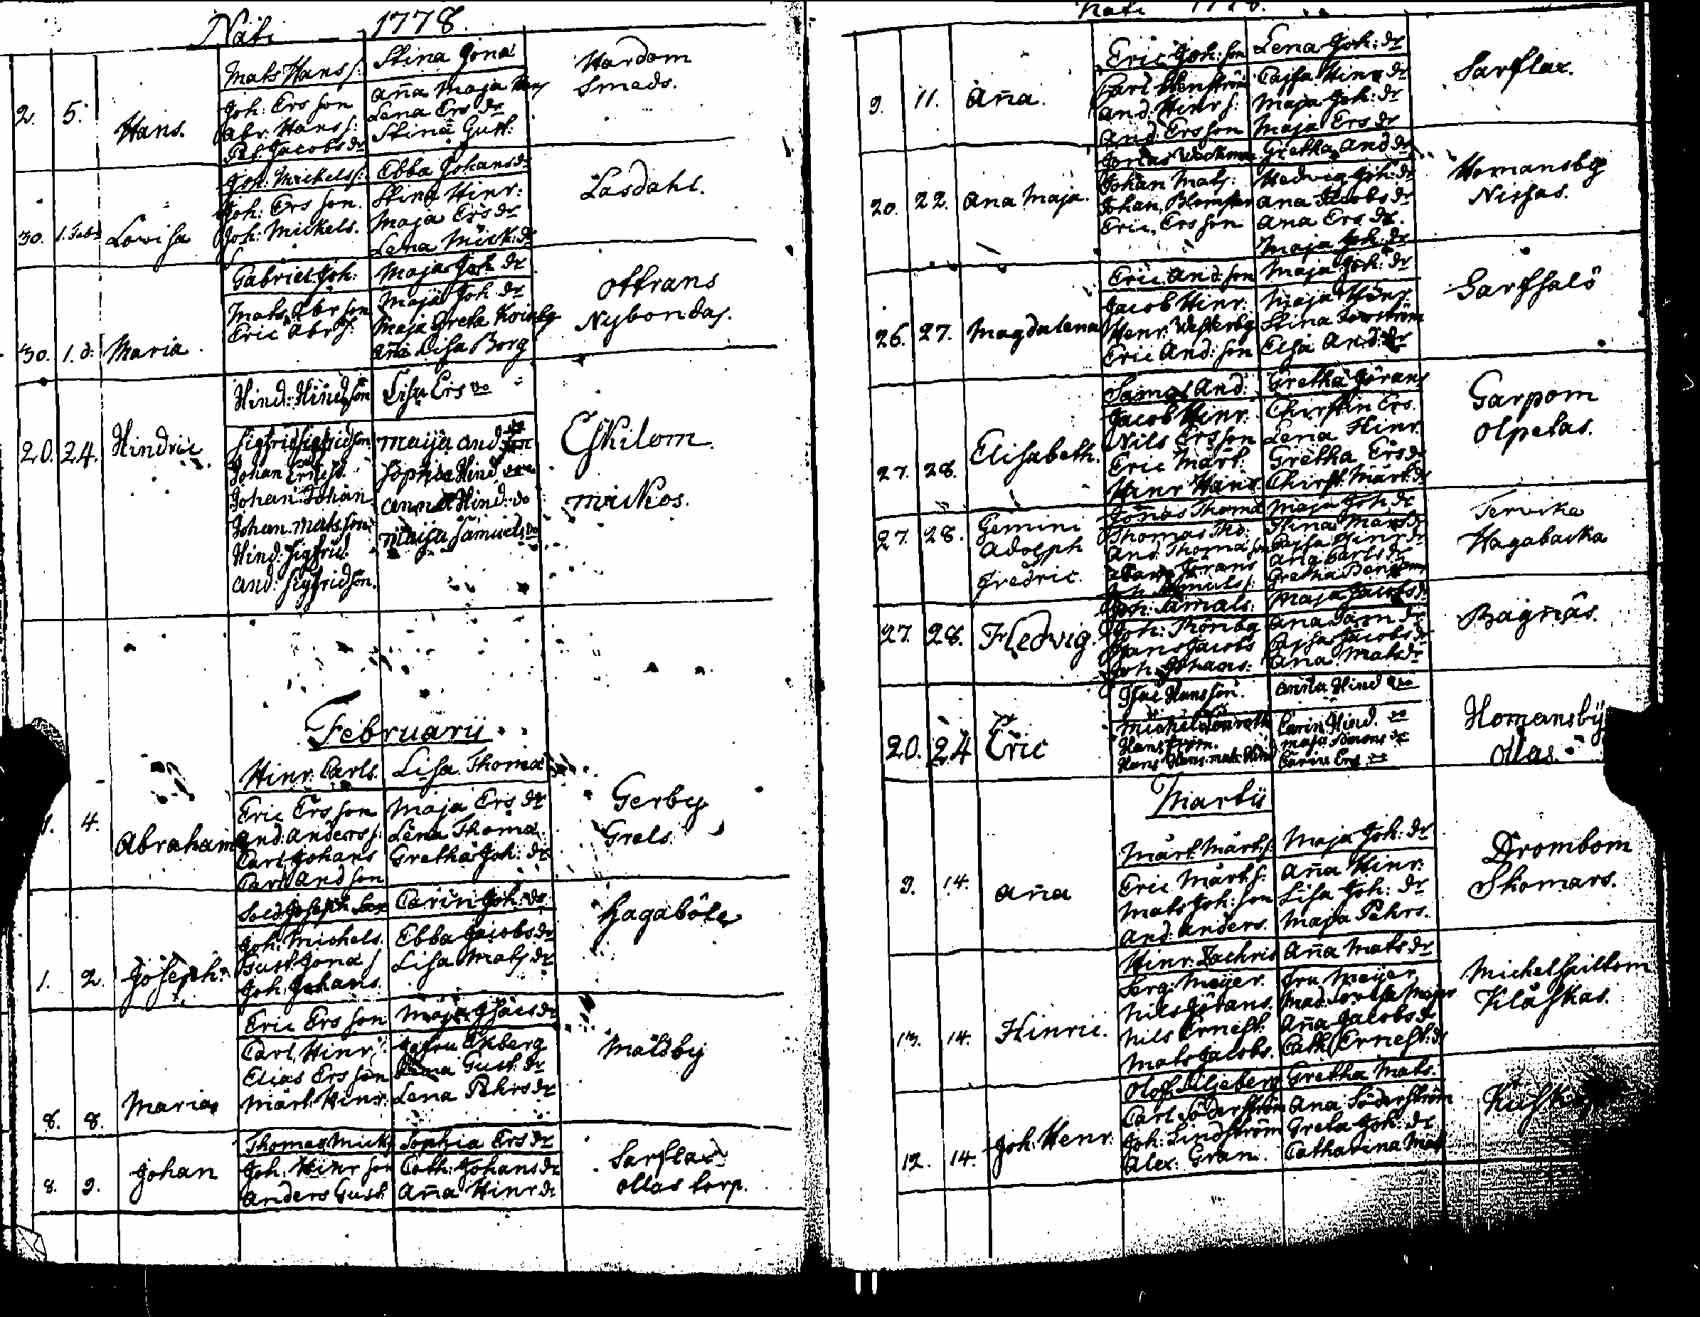 Nati 1778.
Mats Hans s: Stina Jona
2. 5. Hans. Joh: Ers son Aña Maja
Abr. Hans s: Lena Ers dr
Pet. Jacobs dr Stina Gust:
Hardom
Smeds.
Joh: Mickels s: Ebba Johans dr
30. 1. Feb: Lovisa Joh: Ers son. Stina Hinr:
Joh: Mickels. Maja Ers dr
Lena Mick: dr
Lasdahl.
Gabriel Joh: Maja Joh dr
30. 1. d: Maria Mats Abr son Maja Joh dr
Eric Abr s. Maja Greta
Aña Lisa Borg
Ottrans
Nybondas.
Hind: Hindson Lisa Ers do
20. 24. Hindric Sigfrid Sigfridson Maija And
Johan Ernest. Sophia Hind
Johan Johan Anna Hind: do
Johan Matsson Maija Samuels do
Hind: Sigfrid.
And: Sigfridson.
Eskilom
Mickos.
Februarii
Hinr. Carls. Lisa Thoma
1. 4. Abraham Eric Ers son Maja Ers dr
And: Anders s: Lena Thoma
Carl Johans Gretha Joh: dr
Carl And son
Gerby
Grels.
Sold Joseph Carin Joh: dr
1. 2. Joseph. Joh: Michels. Ebba Jacobs dr
Gust Jona s Lisa Mats dr
Joh. Johans.
Hagaböle
Eric Ers son Maja Isacs dr
8. 8. Maria Carl Hinr: Jgfru Ekberg
Elias Ers son Gust. dr
Märt. Hinr. Lena Pehrs dr
Maldby
Thomas Mick Sophia Ers dr
8. 9. Johan Joh. Hinr son Cath: Johans dr
Anders Gust Aña Hinr dr
Sarflax
Ollas torp.
Nati 1778.
Eric Joh: son Lena Joh: dr
9. 11. Aña. Carl Stenström Cajsa Hinr dr
And. Hinr s: Maja Joh: dr
And. Ers son Maja Ers dr
Sarflax.
Jonas Gretha And dr
20. 22. Ana Maja. Johan Mats: Hedvig Joh: dr
Johan Ana Jacobs dr
Eric Ers son Ana Ers dr.
Maja Joh: dr
Homansby
Nissas.
Eric And: son Maja Joh: dr
26. 27. Magdalena Jacob Hinr. Maja Hinr
Henr. Westerbg Stina
Eric And: son Elsa And: dr
Sarfsalö
Samal And: Gretha Görans
27. 28. Elisabeth. Jacob Hinr. Christin Ers.
Nils Ers son Lena Hinr.
Eric Märt. Gretha Ers dr
Hinr Hans Christ. Märt. dr
Garpom
Olpetas.
Jonas Thoma Maja Joh: dr
27. 28. Gemini Thomas Tho. Stina Mats dr
Adolph And. Thoma son Cajsa Hinr dr
Fredric. Görans Ana Carls dr
Gretha
Tervike
Hagabacka
Joh: Samals: Maja Jacobs dr
27. 28. Hedvig Joh: Thornbg Ana
Hans Jacobs Cajsa Jacobs dr
Joh. Johans: Ana Mats dr
Bagnäs.
Isac Hansson. Anna Hind
20. 24 Eric Michel Carin Hind. do
Hans Maja Simons do
Hans Hans. Carin Ers do
Homansby
Ollas.
Martii
Märt. Märt s: Maja Joh: dr
9. 14. Aña Eric Märt s: Aña Hinr.
Mats Joh: son Lisa Joh: dr
And: Anders. Maja Pehrs.
Drombom
Thomars.
Hinr. Zachris Aña Mats dr
13. 14. Hinric. Serg: Meijer. Fru Meijer
Nils Görans. Mad:
Nils Ernest. Aña Jacobs dr
Mats Jacobs. Cath Ernest: dr
Michelspiltom
Klåskas.
Olof Liljeberg Gretha Mats.
12. 14. Joh: Henr. Carl Söderström Ana Söderström
Joh: Lindström Greta Joh: dr
Alex: Gran. Catharina Mats